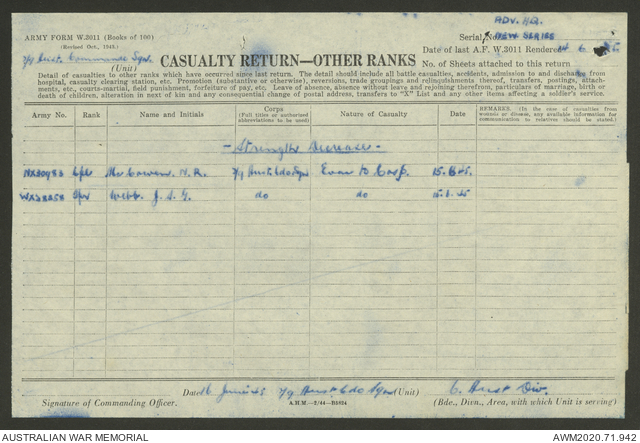 ADV. HQ.
ARMY FORM W.3011 (Books of 100)
(Revised Oct., 1943.)
Serial No. NEW SERIES
2/9 Aust. Commando Sqn.
(Unit)
CASUALTY RETURN—OTHER RANKS
Date of last A.F. W.3011 Rendered 14 6 45
No. of Sheets attached to this return
Detail of casualties to other ranks which have occurred since last return. The detail should include all battle casualties, accidents, admission to and discharge from
hospital, casualty clearing station, etc. Promotion (substantive or otherwise), reversions, trade groupings and relinquishments thereof, transfers, postings, attach-
ments, etc., courts-martial, field punishment, forfeiture of pay, etc. Leave of absence, absence without leave and rejoining therefrom, particulars of marriage, birth or
death of children, alteration in next of kin and any consequential change of postal address, transfers to "X" List and any other items affecting a soldier's service.
Army No. Rank Name and Initials Corps (Full titles or authorized abbreviations to be used) Nature of Casualty Date REMARKS. (In the case of casualties from wounds or disease, any available information for communication to relatives should be stated.)
- Strength Decrease -
Cpl McCowen. N. R. 2/9 Aust Cdo Sqn Evac to Corp.
Spr Webb. J. S. G. do do
Date 16 June 45 2/9 Aust Cdo Sqn (Unit) 6 Aust Div.
Signature of Commanding Officer. A.H.M.—2/44— (Bde., Divn., Area, with which Unit is serving)
AUSTRALIAN WAR MEMORIAL AWM2020.71.942